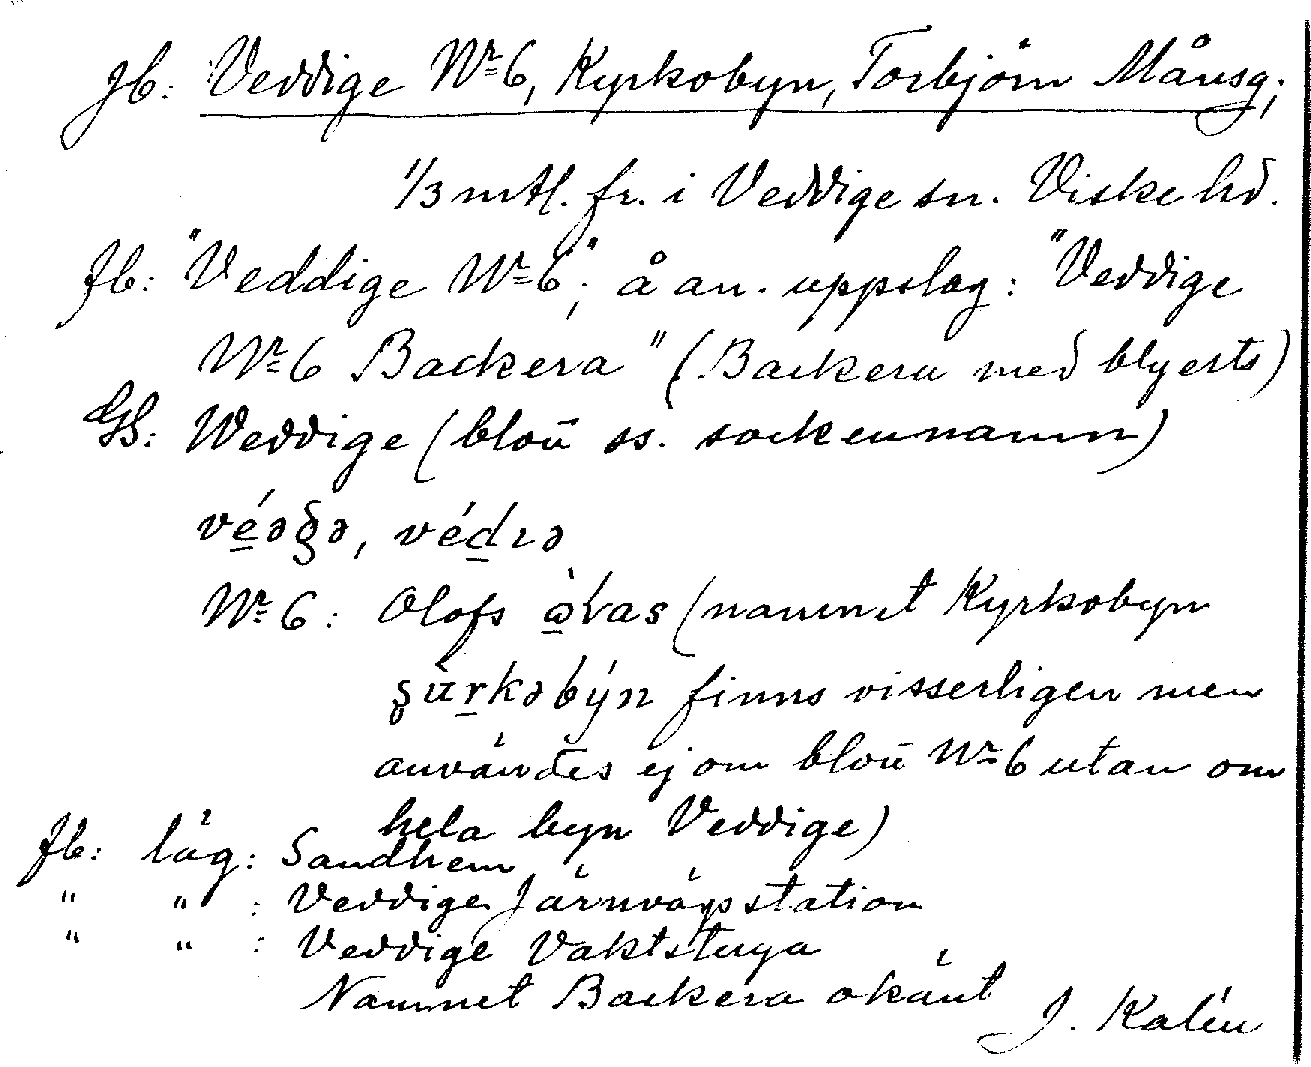 Jb: Veddige Nr 6, Kyrkobyn, Torbjörn Månsg;
1/3 mtl. fr. i Veddige sn. Viske hd.
Jb: "Veddige Nr 6"; å an. uppslag: "Veddige
Nr 6 Backera" (Backera med blyerts)
GS: Weddige (blott ss. sockennamn)
Nr 6: Olofs (namnet Kyrkobyn
finns visserligen men
användes ej om blott Nr 6 utan om
hela byn Veddige)
Jb: läg: Sandhem
" " : Veddige Järnvägsstation
" " : Veddige Vaktstuga
Namnet Backera okänt
J. Kalén